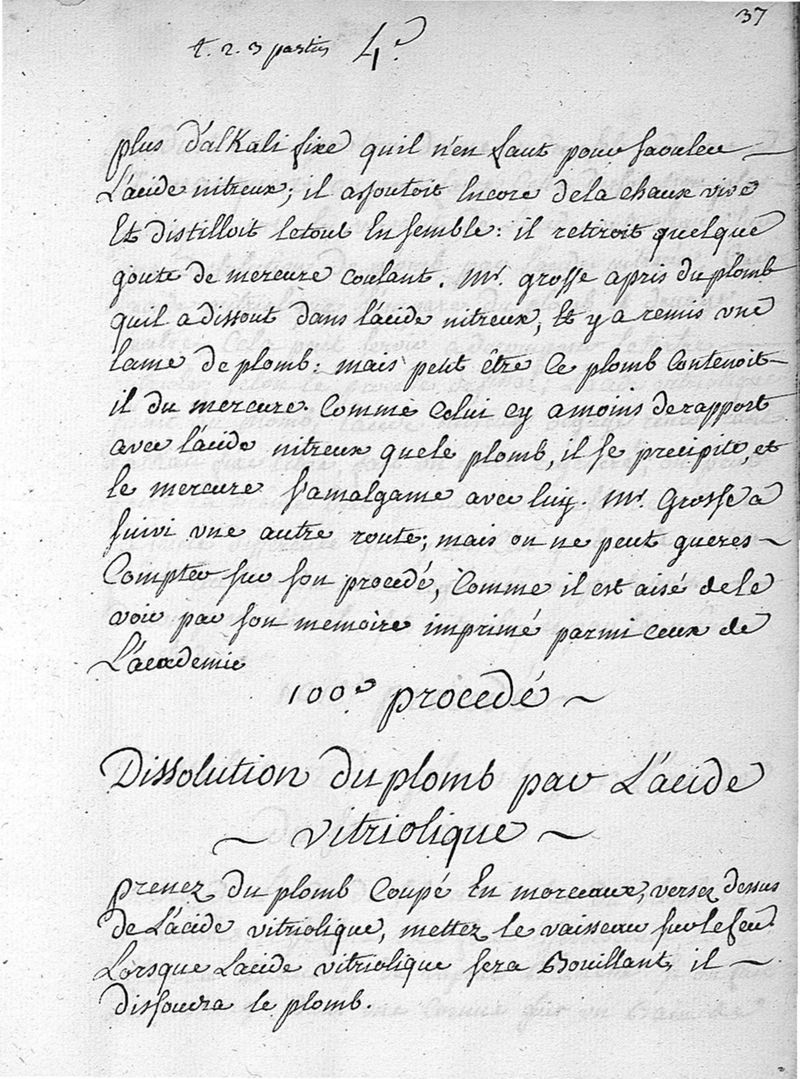 37
t. 2. 3 partie 4.e
plus d'alkali fixe quil n'en faut pour saouler
L'acide nitreux; il ajoutoit Encore dela chaux vive
Et distilloit letout Ensemble: il retiroit quelque
goute de mercure coulant. Mr. grosse apris du plomb
quil adissout dans lacide nitreux, Et y a remis vne
lame de plomb: mais peut être Ce plomb Contenoit
il du mercure. Comme Celui cy amoins derapport
avec l'acide nitreux quele plomb, il se precipite, et
le mercure s'amalgame avec luy. Mr. Grosse a
suivi vne autre route; mais on ne peut gueres
Compter sur son procedé, Comme il est aisé dele
voir par son memoire imprimé parmi ceux de
L'academie
100.e procedé
Dissolution du plomb par L'acide
vitriolique
prenez du plomb Coupé En morceaux, versez dessus
de L'acide vitriolique, mettez le vaisseau sur le feu.
Lorsque Lacide vitriolique sera Bouillant, il
dissoudra le plomb.